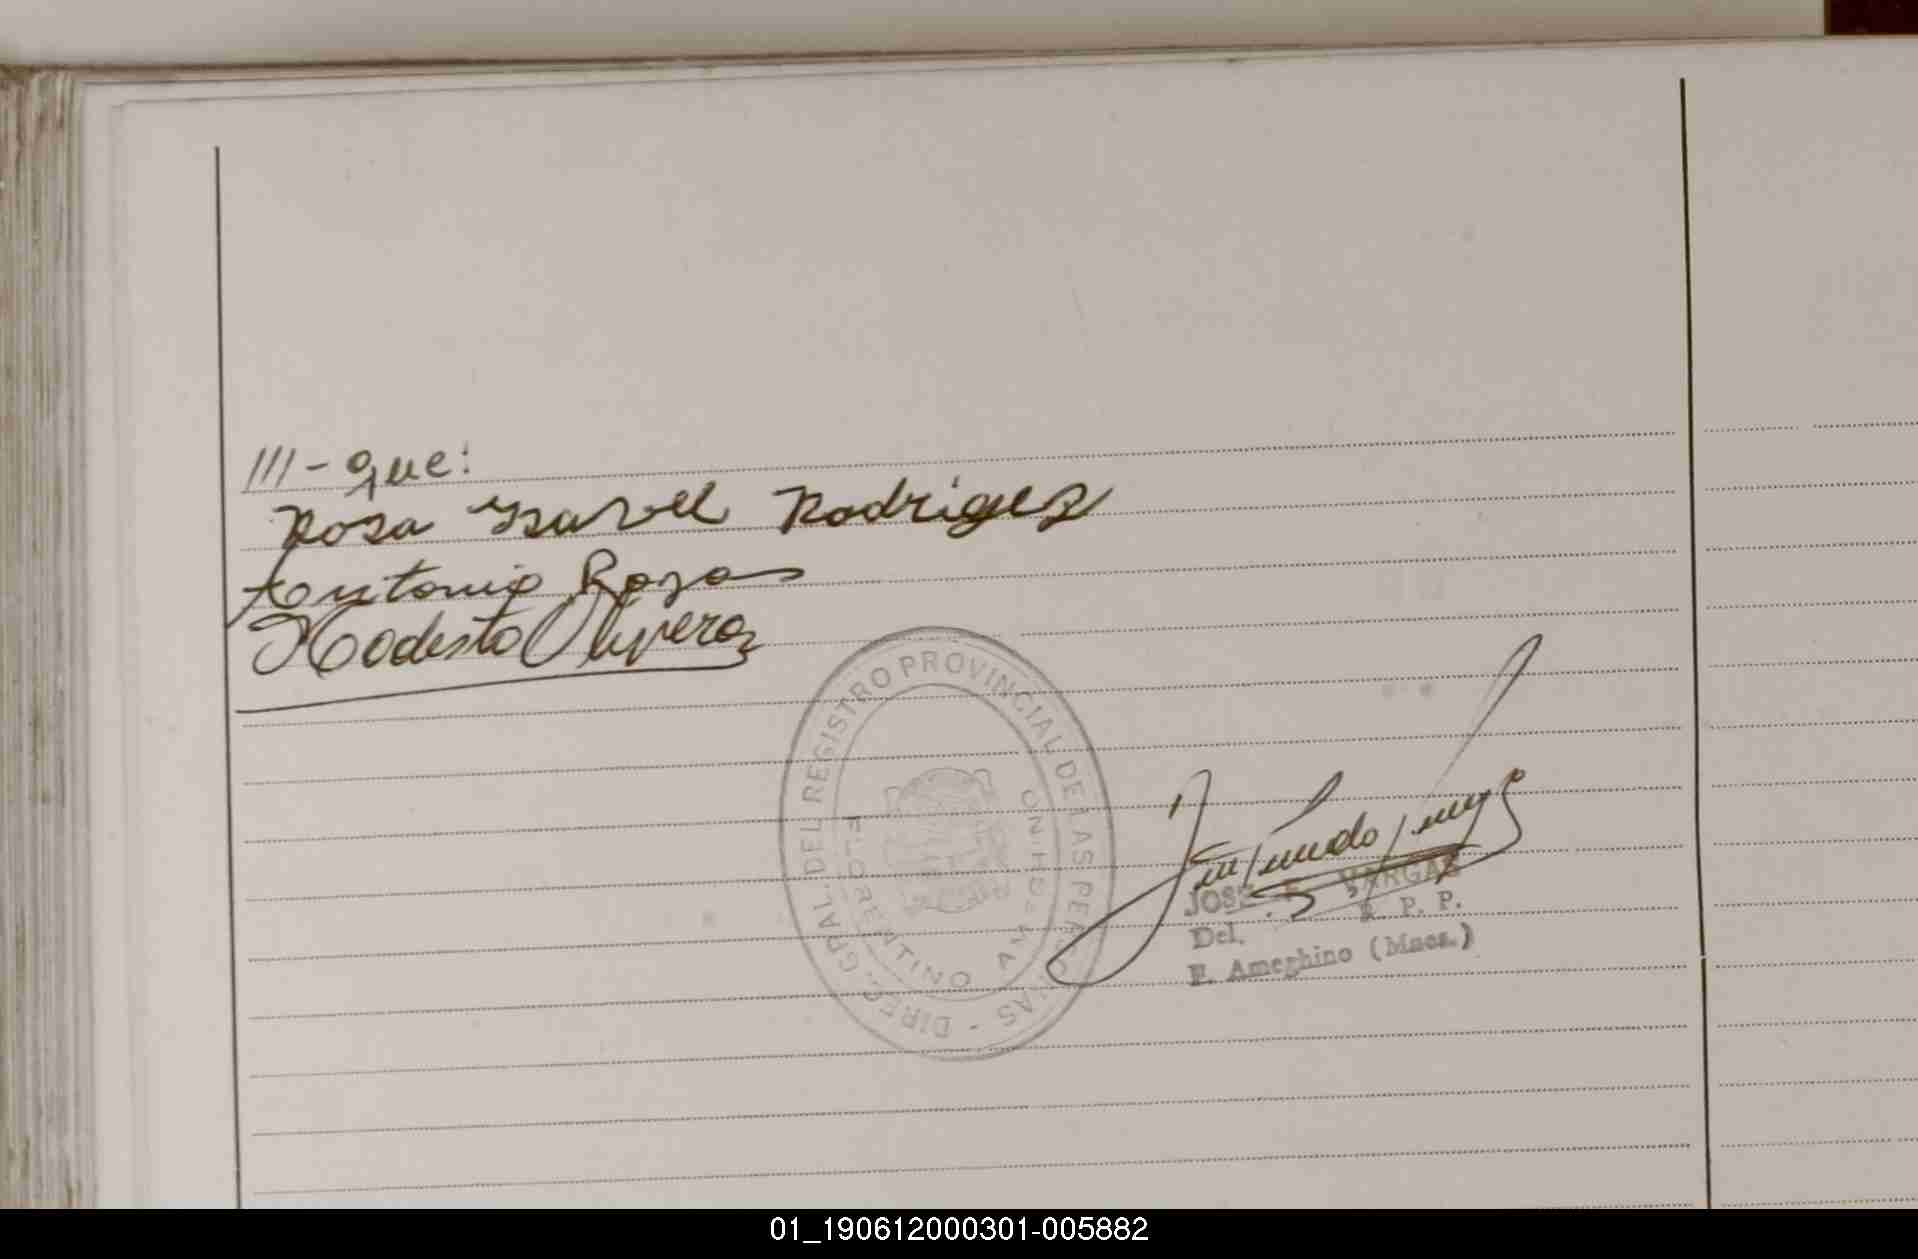 III - que:
Rosa Ysavel Rodrigez
Antonio Rozas
Modesto Olivera
DIREC. GRAL. DEL REGISTRO PROVINCIAL DE LAS PERSONAS -
FLORENTINO AMEGHINO
JOSE F. VARGAS
Del. R. P. P.
F. Ameghino (Mnes.)
01_190612000301-005882